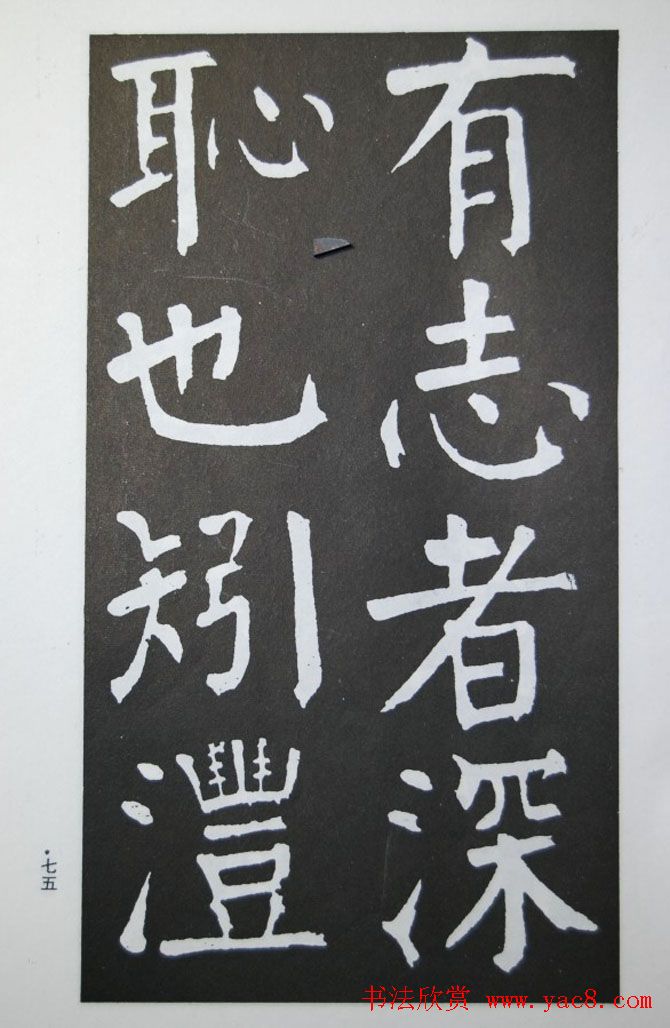 有志者深
恥也矧澧
·七五
书法欣赏 www.yac8.com